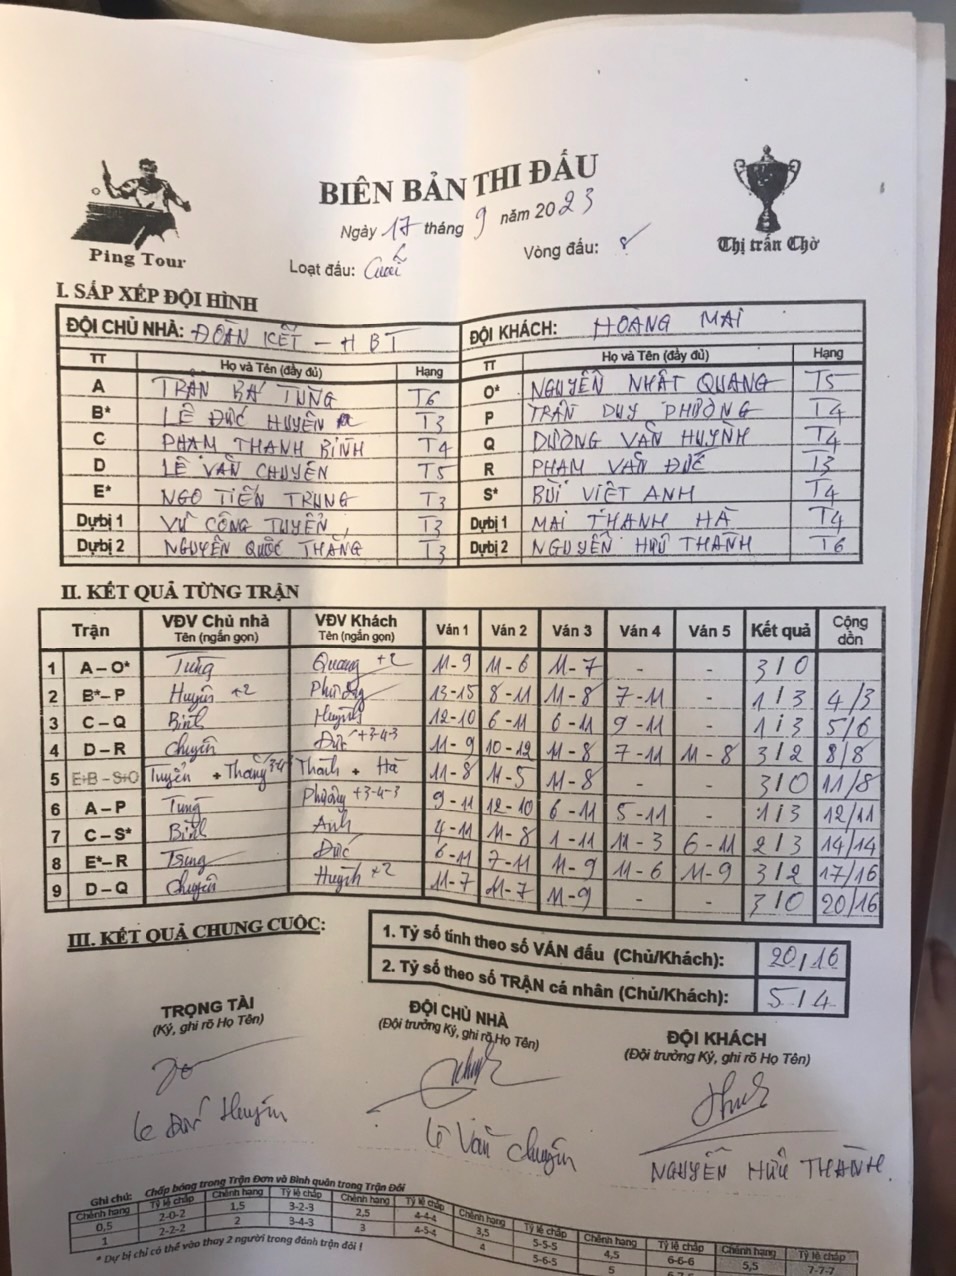 BIÊN BẢN THI ĐẤU
Ngày 17 tháng 9 năm 2023
Ping Tour
Loạt đấu: Cuối
Vòng đấu: 8
Thị trấn Chờ
I. SẮP XẾP ĐỘI HÌNH
ĐỘI CHỦ NHÀ: ĐOÀN KẾT - HBT ĐỘI KHÁCH: HOÀNG MAI
TT Họ và Tên (đầy đủ) Hạng TT Họ và Tên (đầy đủ) Hạng
A TRẦN BÁ TÙNG T6 O* NGUYỄN NHẬT QUANG T5
B* LÊ ĐỨC HUYÊN T3 P TRẦN DUY PHƯƠNG T4
C PHẠM THANH BÌNH T4 Q DƯƠNG VĂN HUỲNH T4
D LÊ VĂN CHUYÊN T5 R PHẠM VĂN ĐỨC T3
E* NGÔ TIẾN TRUNG T3 S* BÙI VIỆT ANH T4
Dự bị 1 VŨ CÔNG TUYỂN T3 Dự bị 1 MAI THANH HÀ T4
Dự bị 2 NGUYỄN QUỐC THẮNG T3 Dự bị 2 NGUYỄN HỮU THÀNH T6
II. KẾT QUẢ TỪNG TRẬN
Trận VĐV Chủ nhà Tên (ngắn gọn) VĐV Khách Tên (ngắn gọn) Ván 1 Ván 2 Ván 3 Ván 4 Ván 5 Kết quả Cộng dồn
1 A – O* Tùng Quang +2 11-9 11-6 11-7 - - 3/0
2 B* – P Huyên +2 Phương 13-15 8-11 11-8 7-11 - 1/3 4/3
3 C – Q Bình Huỳnh 12-10 6-11 6-11 9-11 - 1/3 5/6
4 D – R Chuyên Đức +3-4-3 11-9 10-12 11-8 7-11 11-8 3/2 8/8
5 E+B – S+O Tuyển + Thắng 3-4-3 Thành + Hà 11-8 11-5 11-8 - - 3/0 11/8
6 A – P Tùng Phương +3-4-3 9-11 12-10 6-11 5-11 - 1/3 12/11
7 C – S* Bình Anh 4-11 11-8 1-11 11-3 6-11 2/3 14/14
8 E* – R Trung Đức 6-11 7-11 11-9 11-6 11-9 3/2 17/16
9 D – Q Chuyên Huỳnh +2 11-7 11-7 11-9 - - 3/0 20/16
III. KẾT QUẢ CHUNG CUỘC:
1. Tỷ số tính theo số VÁN đấu (Chủ/Khách): 20/16
2. Tỷ số theo số TRẬN cá nhân (Chủ/Khách): 5/4
TRỌNG TÀI
(Ký, ghi rõ Họ Tên)
ĐỘI CHỦ NHÀ
(Đội trưởng Ký, ghi rõ Họ Tên)
ĐỘI KHÁCH
(Đội trưởng Ký, ghi rõ Họ Tên)
Lê Đức Huyên
Lê Văn Chuyên
NGUYỄN HỮU THÀNH
Ghi chú: Chấp bóng trong Trận Đơn và Bình quân trong Trận Đôi
Chênh hạng Tỷ lệ chấp Chênh hạng Tỷ lệ chấp Chênh hạng Tỷ lệ chấp Chênh hạng Tỷ lệ chấp Chênh hạng Tỷ lệ chấp Chênh hạng Tỷ lệ chấp
0,5 2-0-2 1,5 3-2-3 2,5 4-4-4 3,5 5-5-5 4,5 6-6-6 5,5 7-7-7
1 2-2-2 2 3-4-3 3 4-5-4 4 5-6-5 5
* Dự bị chỉ có thể vào thay 2 người trong đánh trận đôi !